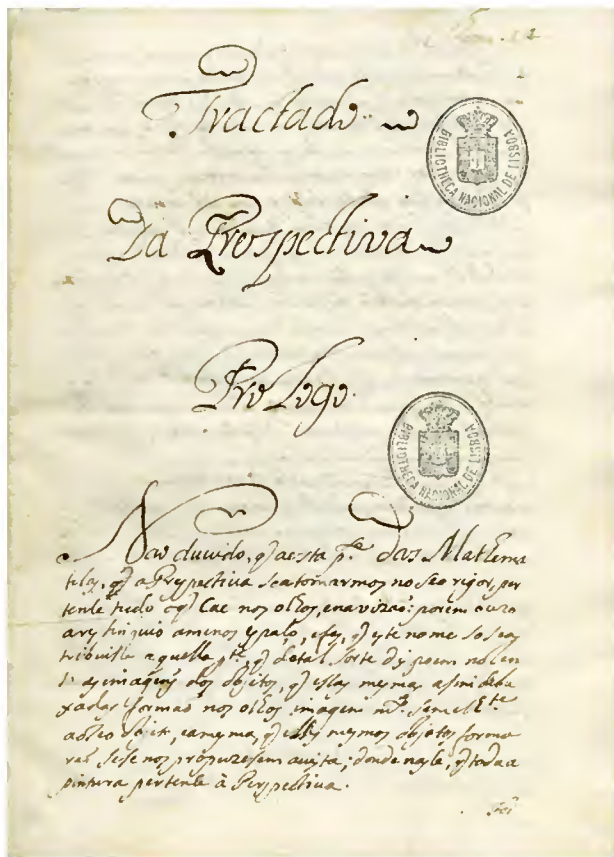 Tractado
Da Prospectiva
Prologo
BIBLIOTHECA NACIONAL DE LISBOA
BIBLIOTHECA NACIONAL DE LISBOA
Nao duvido, q̃ a esta p.te das Mathema
ticas, q̃ a Prespectiva se a tomarmos no seo rigor, per
tence tudo o q̃ Cae nos olhos, e na vizaõ: porem o uzo
a menos espaço, e fes, q̃ este nome so se a
tribuisse a quella p.te, q̃ de tal sorte dispoem
as imagẽs dos objetos, q̃ ellas mesmas assim debu
xadas formaõ nos olhos imagem m.to semelh.te
ao seo objeto, e a mesma, q̃ elles mesmos objetos forma
raõ se se nos propuzessem a vista; donde nasce, q̃ toda a
pintura pertence à Perspectiva.